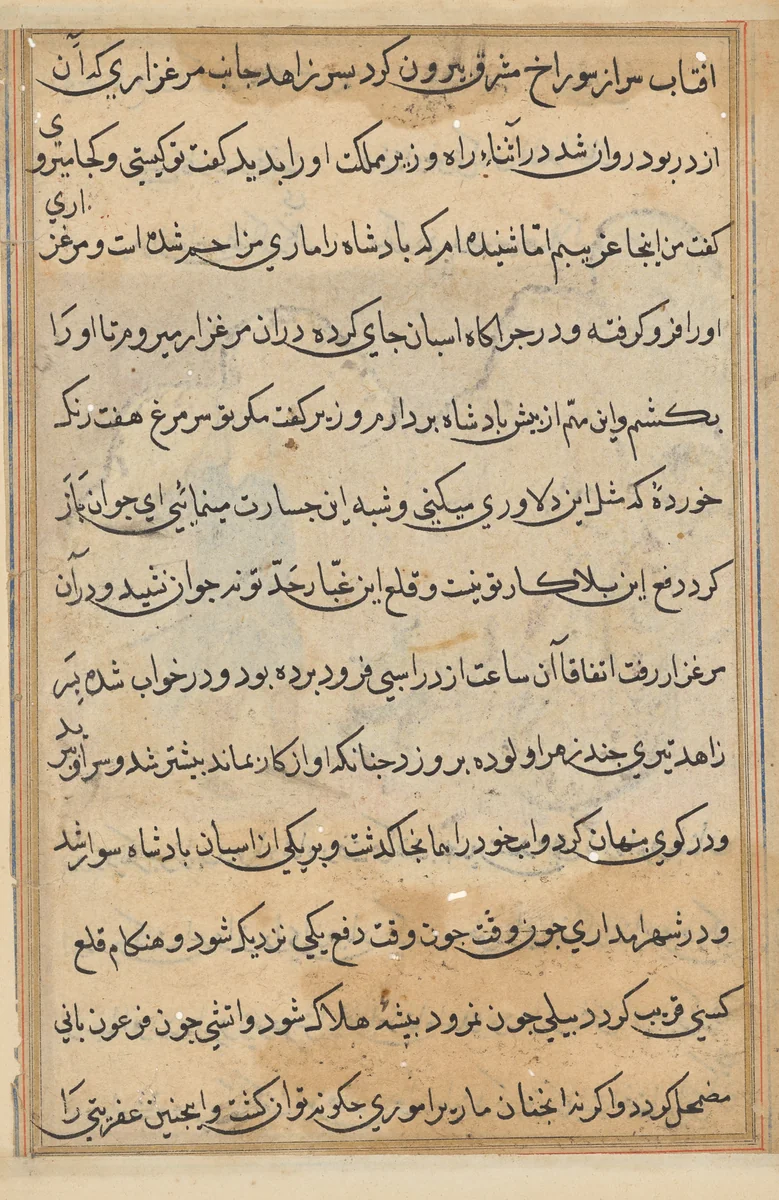 افتاب سر از سوراخ مشرق بیرون کرد بسر زاهد جانب مرغزاری که آن
از در بود روان شد در آثناء راه وزیر مملکت او را بدید کفت تو کیستی و کجا میروی
کفت من اینجا غریبم امّا شنیده ام که بادشاه را ماری مزاحم شده است و مرغزاری
او را فرو کرفته و در جراکاه اسبان جای کرده دران مرغزار میروم تا او رَا
بکشم و این مهّم از بیش بادشاه بردارم وزیر کفت مکر تو سر مرغ هفت رنک
خوردهٔ که مثل این دلاوری میکنی و شبه این جسارت مینمائی ای جوان بَازَ
کرد دفع این بلا کار تو نیست و قلع این غبّار حَدّ تو نه جوان نشید و در آن
مرغزار رفت اتفاقا آن ساعت ازدر اسبی فرود برده بود و در خواب شده بسَر
زاهد تیری جند زهر اولوده برو زد جنانکه او از کار بماند بیشتر شد و سر او ببرید
و در کوی بنهان کرد و اسب خود را همانجا کذشت و بر یکی از اسبان بادشاه سوار شد
و در شهر امد اری جون وقت جون وقت دفع یکی نزدیک شود و هنکام قلع
کسی قریب کردد ببیلی جون نمرود ببشهٔ هلاک شود و اتشی جون فرعون بابی
مضمحل کردد و اکرنه انجنان مار برا موری جکونه توان کشت و اینجنین عفریتی رَا